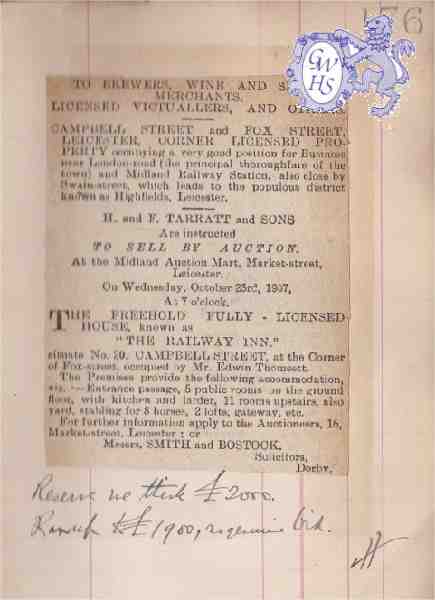 176
GW
HS
TO BREWERS, WINE AND
MERCHANTS,
LICENSED VICTUALLERS, AND
CAMPBELL STREET and FOX STREET,
LEICESTER, CORNER LICENSED PRO-
PERTY occupying a very good position for Business
near London-road (the principal thoroughfare of the
town) and Midland Railway Station, also close by
Swain-street, which leads to the populous district
known as Highfields, Leicester.
H. and F. TARRATT and SONS
Are instructed
TO SELL BY AUCTION,
At the Midland Auction Mart, Market-street,
Leicester,
On Wednesday, October 23rd, 1907,
At 7 o'clock.
THE FREEHOLD FULLY-LICENSED
HOUSE, known as
"THE RAILWAY INN,"
situate No. 20, CAMPBELL STREET, at the Corner
of Fox-street, occupied by Mr. Edwin Thomsett.
The Premises provide the following accommodation,
viz. :—Entrance passage, 5 public rooms on the ground
floor, with kitchen and larder, 11 rooms upstairs, also
yard, stabling for 8 horses, 2 lofts, gateway, etc.
For further information apply to the Auctioneers, 16,
Market-street, Leicester ; or
Messrs. SMITH and BOSTOCK,
Solicitors,
Derby.
Reserve we think £2000.
£1900, no genuine bid.